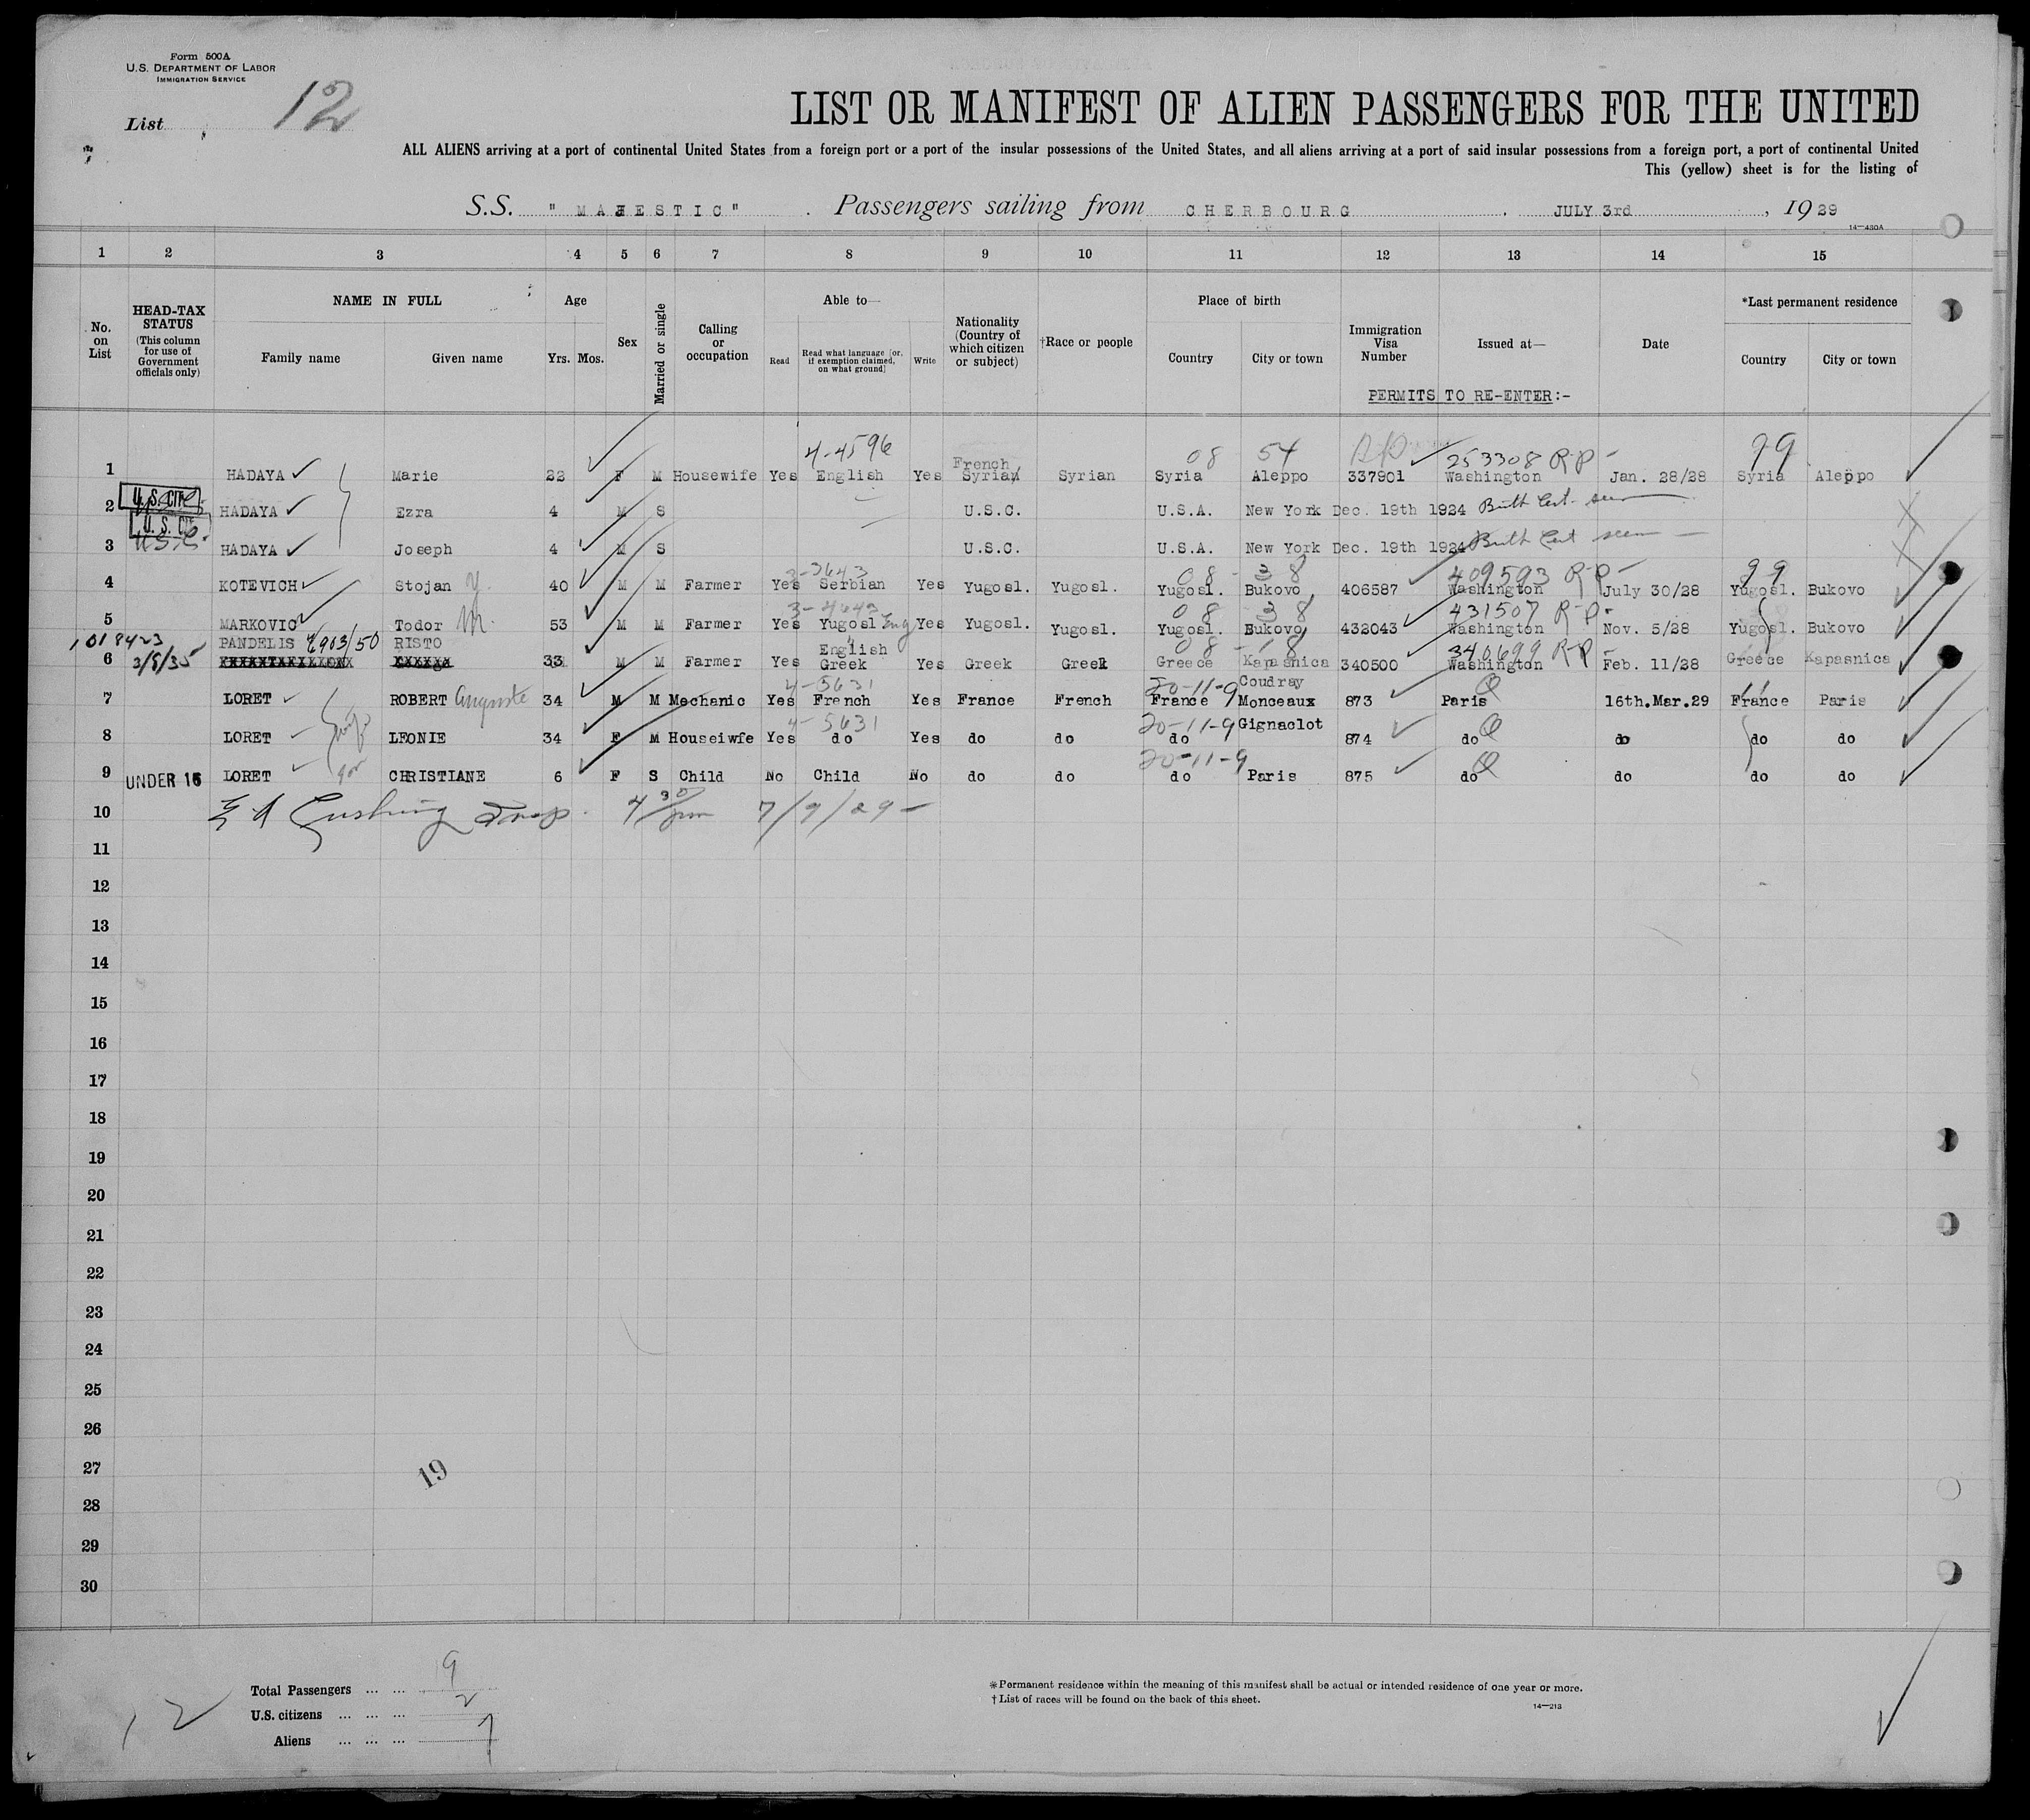 Form 500A
U.S. DEPARTMENT OF LABOR
IMMIGRATION SERVICE
List 12
LIST OR MANIFEST OF ALIEN PASSENGERS FOR THE UNITED
ALL ALIENS arriving at a port of continental United States from a foreign port or a port of the insular possessions of the United States, and all aliens arriving at a port of said insular possessions from a foreign port, a port of continental United
This (yellow) sheet is for the listing of
S.S. " MAJESTIC" . Passengers sailing from CHERBOURG . JULY 3rd , 1929
14—480A
1 2 3 4 5 6 7 8 9 10 11 12 13 14 15
No. on List
HEAD-TAX STATUS (This column for use of Government officials only)
NAME IN FULL
Family name Given name
Age
Yrs. Mos.
Sex
Married or single
Calling or occupation
Able to—
Read Read what language [or, if exemption claimed, on what ground] Write
Nationality (Country of which citizen or subject)
†Race or people
Place of birth
Country City or town
Immigration Visa Number
Issued at—
Date
*Last permanent residence
Country City or town
PERMITS TO RE-ENTER:-
4-4596 08 54 253308 R-P - 99
French
1 HADAYA Marie 22 F M Housewife Yes English Yes Syrian Syrian Syria Aleppo 337901 Washington Jan. 28/28 Syria Aleppo
U. S. CIT
2 HADAYA Ezra 4 M S U.S.C. U.S.A. New York Dec. 19th 1924 Birth Cert. seen
U. S. CIT
U.S.C.
3 HADAYA Joseph 4 M S U.S.C. U.S.A. New York Dec. 19th 1924 Birth Cert seen
3-3643 08 - 38 409593 R-P - 99
4 KOTEVICH Stojan Y. 40 M M Farmer Yes Serbian Yes Yugosl. Yugosl. Yugosl. Bukovo 406587 Washington July 30/28 Yugosl. Bukovo
3-4643 08 38 431507 R-P-
5 MARKOVIC Todor M. 53 M M Farmer Yes Yugosl Eng Yes Yugosl. Yugosl. Yugosl. Bukovo 432043 Washington Nov. 5/28 Yugosl. Bukovo
1018423 PANDELIS 7903/50 RISTO English 340699 R-P-
6 3/8/35 33 M M Farmer Yes Greek Yes Greek Greek Greece Kapasnica 340500 Washington Feb. 11/28 Greece Kapasnica
4-5631 20-11-9 Coudray Q
7 LORET ROBERT Auguste 34 M M Mechanic Yes French Yes France French France Monceaux 873 Paris 16th.Mar.29 France Paris
wife 4-5631 20-11-9 Gignaclot
8 LORET LEONIE 34 F M Houseiwfe Yes do Yes do do do 874 do Q do do do
20-11-9
9 UNDER 16 LORET CHRISTIANE 6 F S Child No Child No do do do Paris 875 do Q do do do
10 E A Cushing Insp. 4 30 pm 7/9/29 -
11
12
13
14
15
16
17
18
19
20
21
22
23
24
25
26
27
19
28
29
30
Total Passengers ... ... 9
U.S. citizens ... ... ... 2
Aliens ... ... ... 7
12
*Permanent residence within the meaning of this manifest shall be actual or intended residence of one year or more.
†List of races will be found on the back of this sheet.
14—213